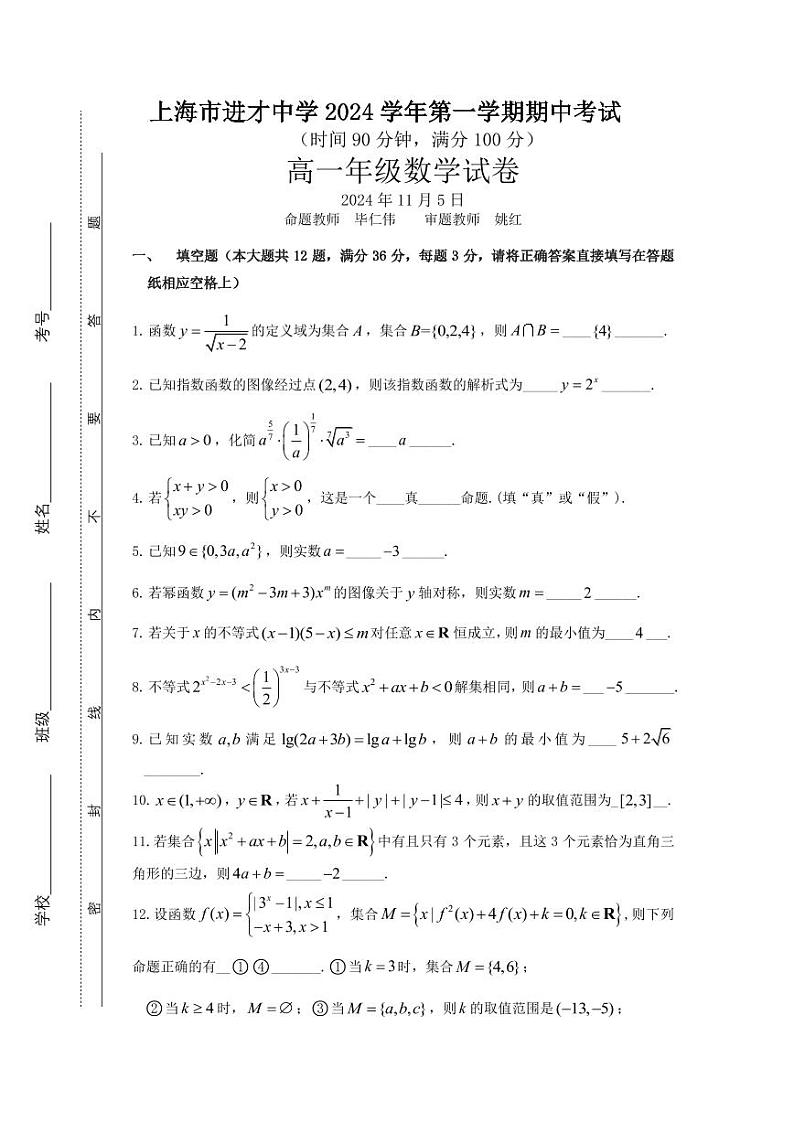 上海市进才中学 2024 学年第一学期期中考试
（时间 90 分钟，满分 100 分）
高一年级数学试卷
2024 年 11 月 5 日
命题教师 毕仁伟 审题教师 姚红
一、 填空题（本大题共 12 题，满分 36 分，每题 3 分，请将正确答案直接填写在答题
纸相应空格上）
1. 函数 y = 1/√(x−2) 的定义域为集合 A，集合 B={0,2,4}，则 A∩B = ____{4}_______.
2. 已知指数函数的图像经过点(2,4)，则该指数函数的解析式为_____ y = 2^x _______.
3. 已知 a > 0，化简 a^(5/7)·(1/a)^(1/7)·⁷√(a³) = ____a______.
4. 若{x+y>0, xy>0，则{x>0, y>0，这是一个____真______命题.(填“真”或“假”).
5. 已知 9∈{0,3a,a²}，则实数 a = _____−3______.
6. 若幂函数 y = (m²−3m+3)x^m 的图像关于 y 轴对称，则实数 m = _____2______.
7. 若关于 x 的不等式 (x−1)(5−x) ≤ m 对任意 x∈R 恒成立，则 m 的最小值为____4___.
8. 不等式 2^(x²−2x−3) < (1/2)^(3x−3) 与不等式 x²+ax+b<0 解集相同，则 a+b = ___−5_______.
9. 已知实数 a,b 满足 lg(2a+3b) = lg a + lg b，则 a+b 的最小值为____ 5+2√6
________.
10. x∈(1,+∞)，y∈R，若 x + 1/(x−1) + |y| + |y−1| ≤ 4，则 x+y 的取值范围为_[2,3]__.
11. 若集合 {x||x²+ax+b| = 2,a,b∈R} 中有且只有 3 个元素，且这 3 个元素恰为直角三
角形的三边，则 4a+b = _____−2______.
12. 设函数 f(x) = {|3^x−1|, x≤1; −x+3, x>1，集合 M = {x | f²(x)+4f(x)+k=0,k∈R}，则下列
命题正确的有__①④_______. ①当 k = 3 时，集合 M = {4,6}；
②当 k ≥ 4 时，M = ∅；③当 M = {a,b,c}，则 k 的取值范围是 (−13,−5)；
考号
姓名
班级
学校
密 封 线 内 不 要 答 题